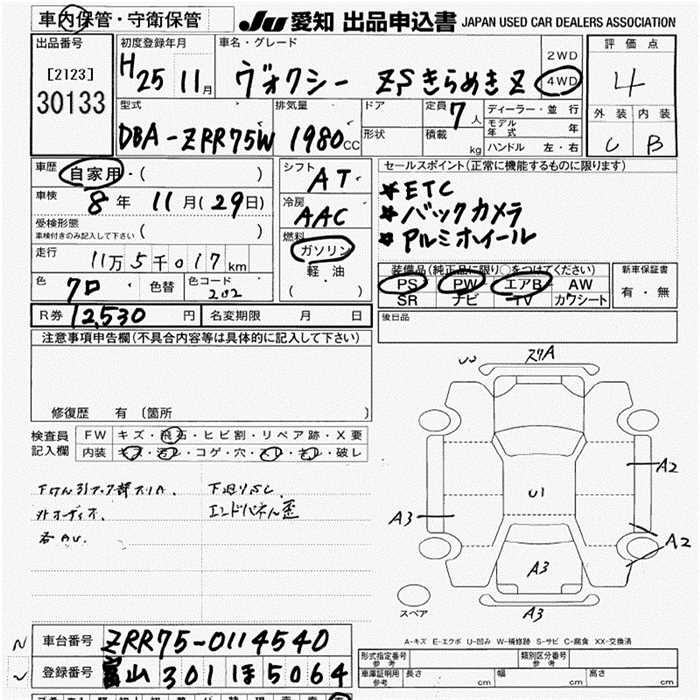 車内保管・守衛保管
JU 愛知 出品申込書 JAPAN USED CAR DEALERS ASSOCIATION
出品番号
[2123]
30133
初度登録年月
H25 11月
車名・グレード
ヴォクシー ZSきらめきZ
2WD
4WD
評価点
4
外装 内装
C B
型式
DBA-ZRR75W
排気量
1980cc
ドア
形状
定員
7人
積載
kg
ディーラー・並行
モデル年式 年
ハンドル 左・右
車歴
自家用・( )
車検
8年 11月(29日)
受検形態
車検付きのみ記入して下さい ( )
走行
11万5千017km
色
クロ 色替
色コード
202
シフト
AT
冷房
AAC
燃料
ガソリン
軽油
( ・ )
セールスポイント(正常に機能するものに限ります)
*ETC
*バックカメラ
*アルミホイール
装備品(純正品に限り○をつけてください)
PS PW エアB AW
SR ナビ TV カワシート
新車保証書
有・無
R券 12,530円 名変期限 月 日
後日品
注意事項申告欄(不具合内容等は具体的に記入して下さい)
修復歴 有 〔箇所 〕
検査員
記入欄
FW キズ・飛石・ヒビ割・リペア跡・X要
内装 キズ・汚レ・コゲ・穴・スレ・キレ・破レ
下廻りサビ
外オーディオ
エンドパネル歪
各AU.
スリA
A2
U1
A3
A2
A3
A3
スペア
A-キズ E-エクボ U-凹み W-補修跡 S-サビ C-腐食 XX-交換済
車台番号 ZRR75-0114540
登録番号 富山 301 ほ 5064
形式指定番号
参考
類別区分番号
参考
車庫証明用
参考
長さ cm 幅 cm 高さ cm